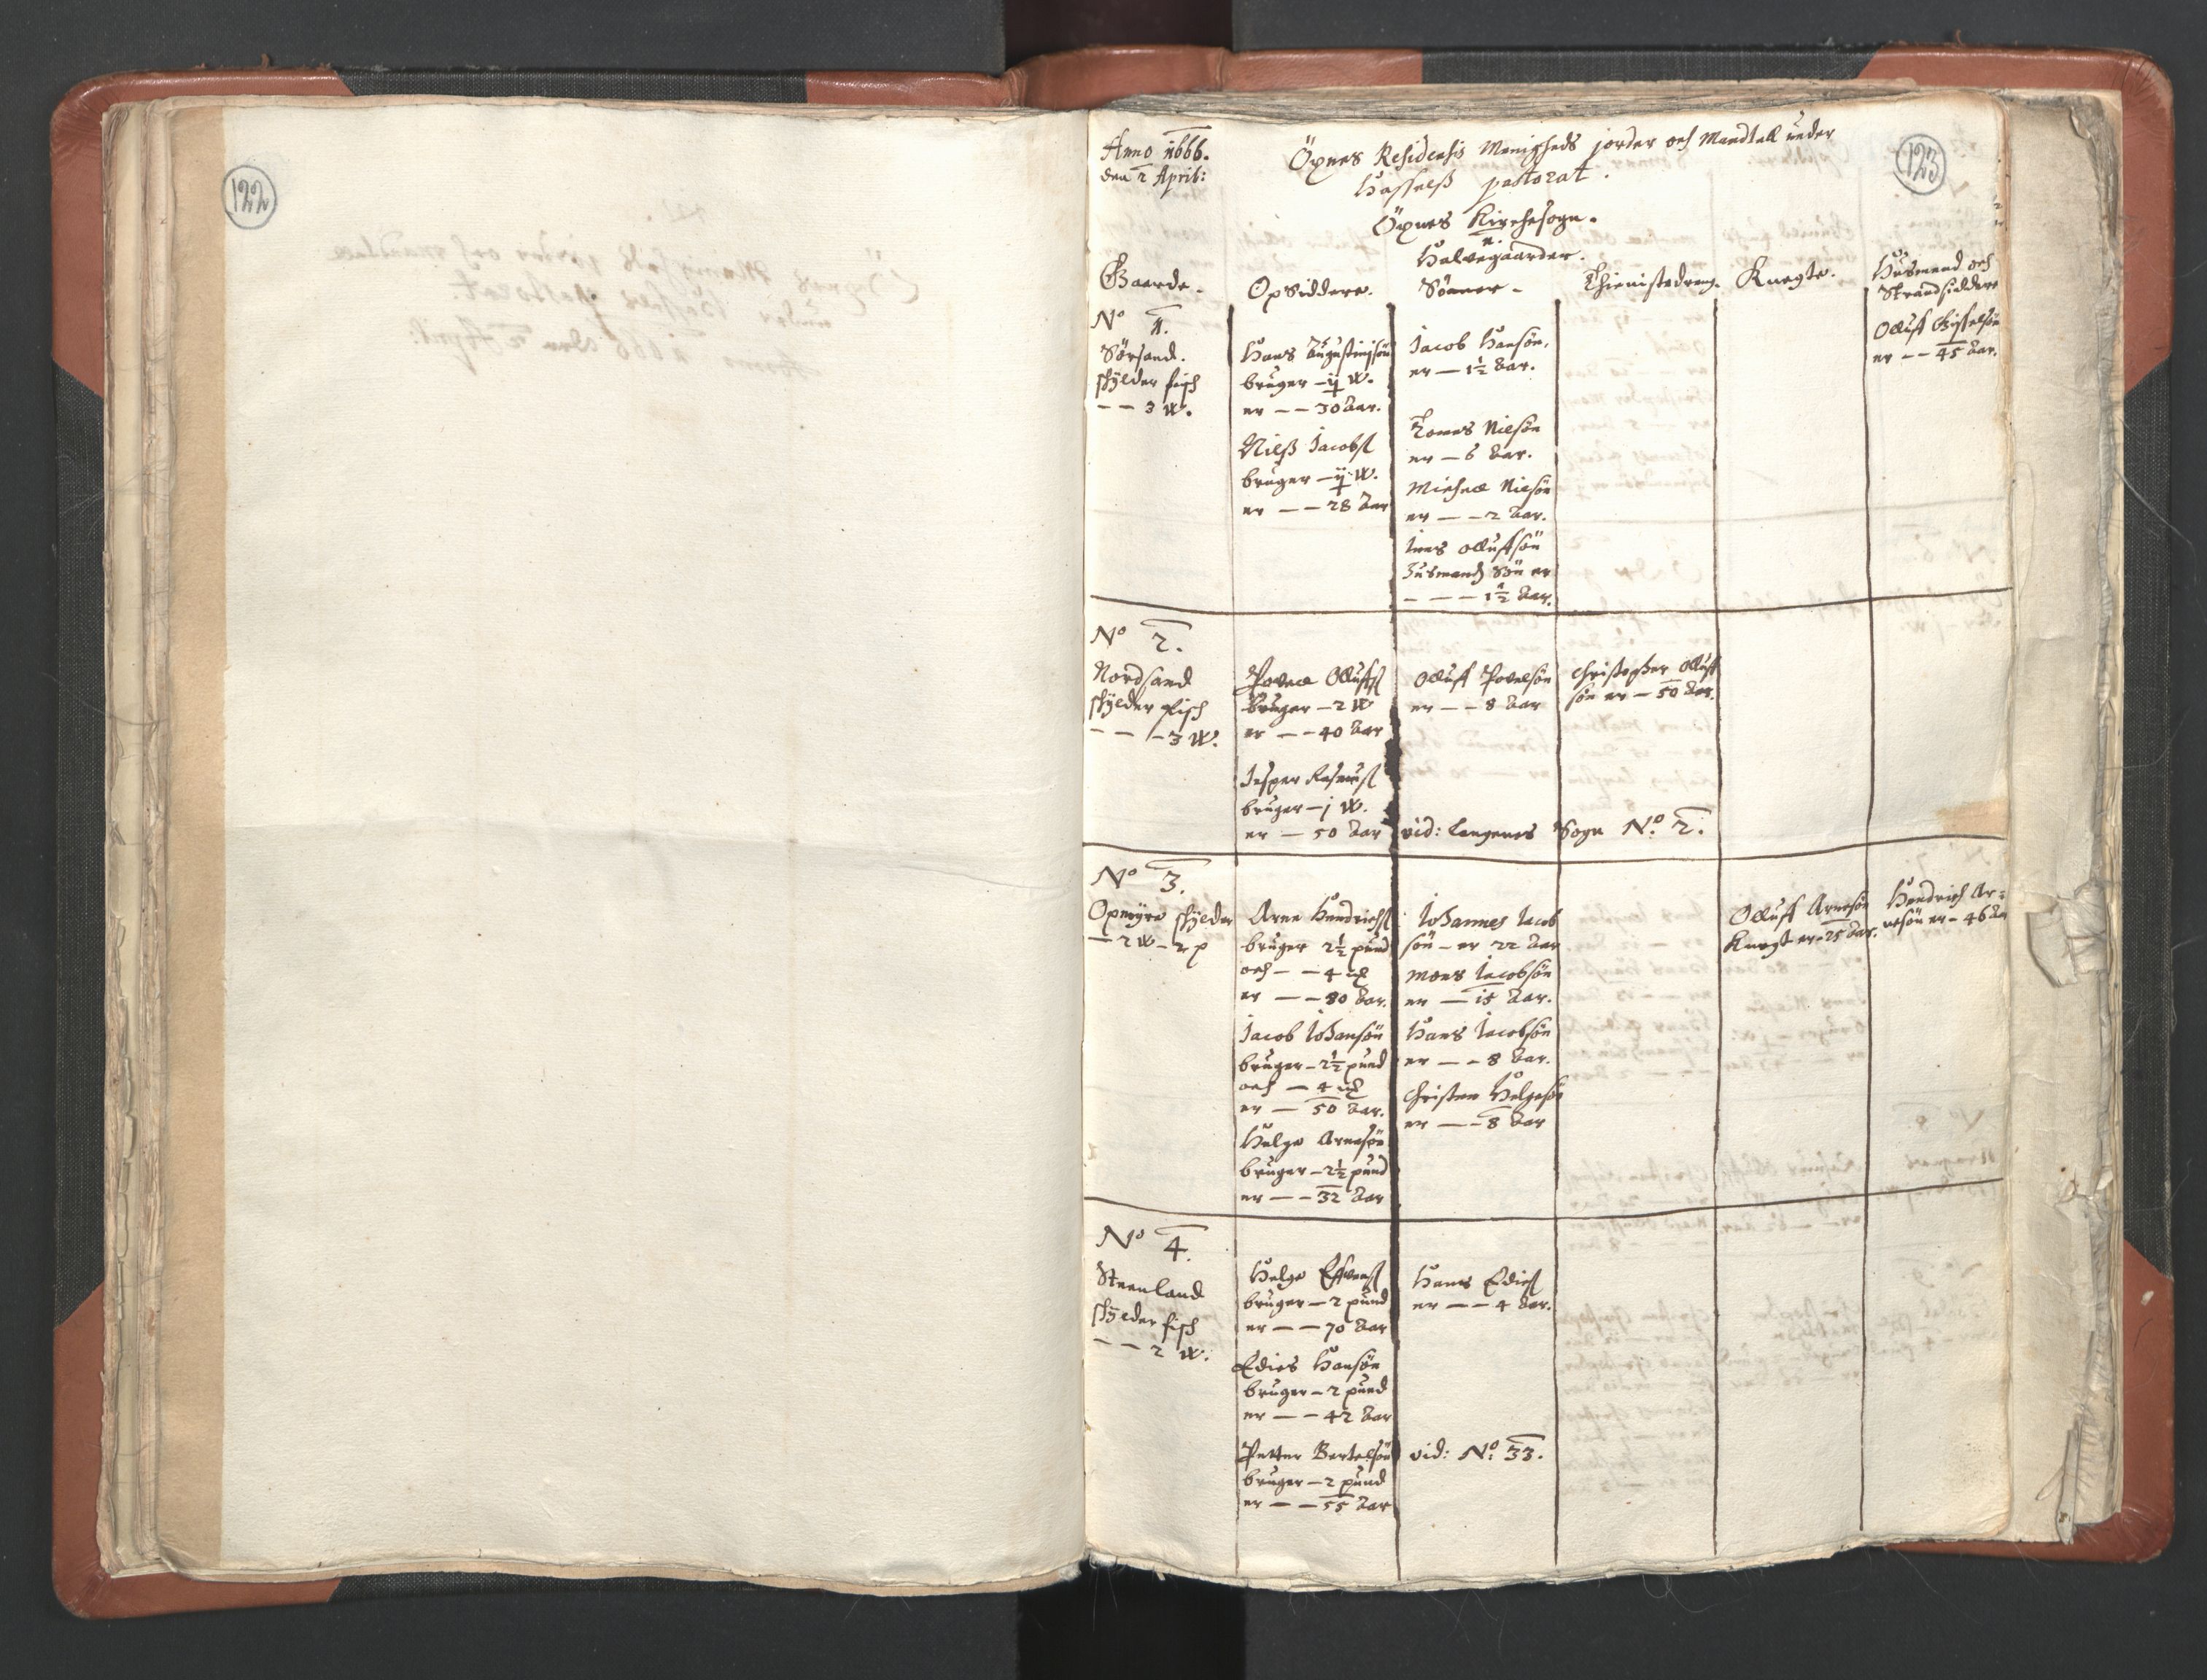 122
123
Anno 1666.
den 2 April:
Öxnes Residensis Menigheds jorder och Mandtall under
Hasselß pastorat.
Öxnes Kirchesogn.
Halvegaarder.
Gaarde.
Opsiddere.
Sönner.
Thienistedreng.
Knegte.
Husmend och
Strandsiddere
No 1.
Sörsand.
schylder fisch
— — 3 W.
Hans Augustinsön
bruger — W.
er — — 30 Aar.
Nielß Jacobs
bruger — W.
er — — 28 Aar
Jacob Hansön,
er — 1½ Aar.
Tomes Nielsön
er — 6 Aar.
Michael Nielsön
er — — 2 Aar.
Jens Olluffsön
Husmands Sön er
— — — 1½ Aar.
Olluff
er — — 45 Aar.
No 2.
Nordsand
schylder fisch
— — — 3 W.
Povell Olluffs
bruger — 2 W
er — — 40 Aar
Jesper Rasmus
bruger — j W.
er — 50 Aar
Olluff Povelsön
er — — 8 Aar
Christopher Olluff
sön er — 50 Aar.
vid: Langenes Sogn No. 2.
No 3.
Opmyre schylder
— 2 W — 2 p
Arne Hendrichs
bruger 2½ pund
och — — 4
er — — 80 Aar.
Jacob Johansön
bruger — 2½ pund
och — 4
er — 50 Aar.
Helge Arnesön
bruger — 2½ pund
er — — 32 Aar
Johannes Jacob
sön — er 22 Aar
Mons Jacobsön
er — 15 Aar.
Hans Jacobsön
er — — 8 Aar.
Christen Helgesön
er — — 8 Aar
Olluff Arnesön
Knegt er — 25 Aar.
Hendrich Ar=
nesön er — 46 Aar
No 4.
Steenland
schylder fisch
— — 2 W.
Helge
bruger — 2 pund
er — — 70 Aar
Edies Hansön
bruger — 2 pund
er — — 42 Aar
Petter Bertelsön
bruger — 2 pund
er — — 55 Aar
Hans Edies
er — — 4 Aar.
vid: No. 33.